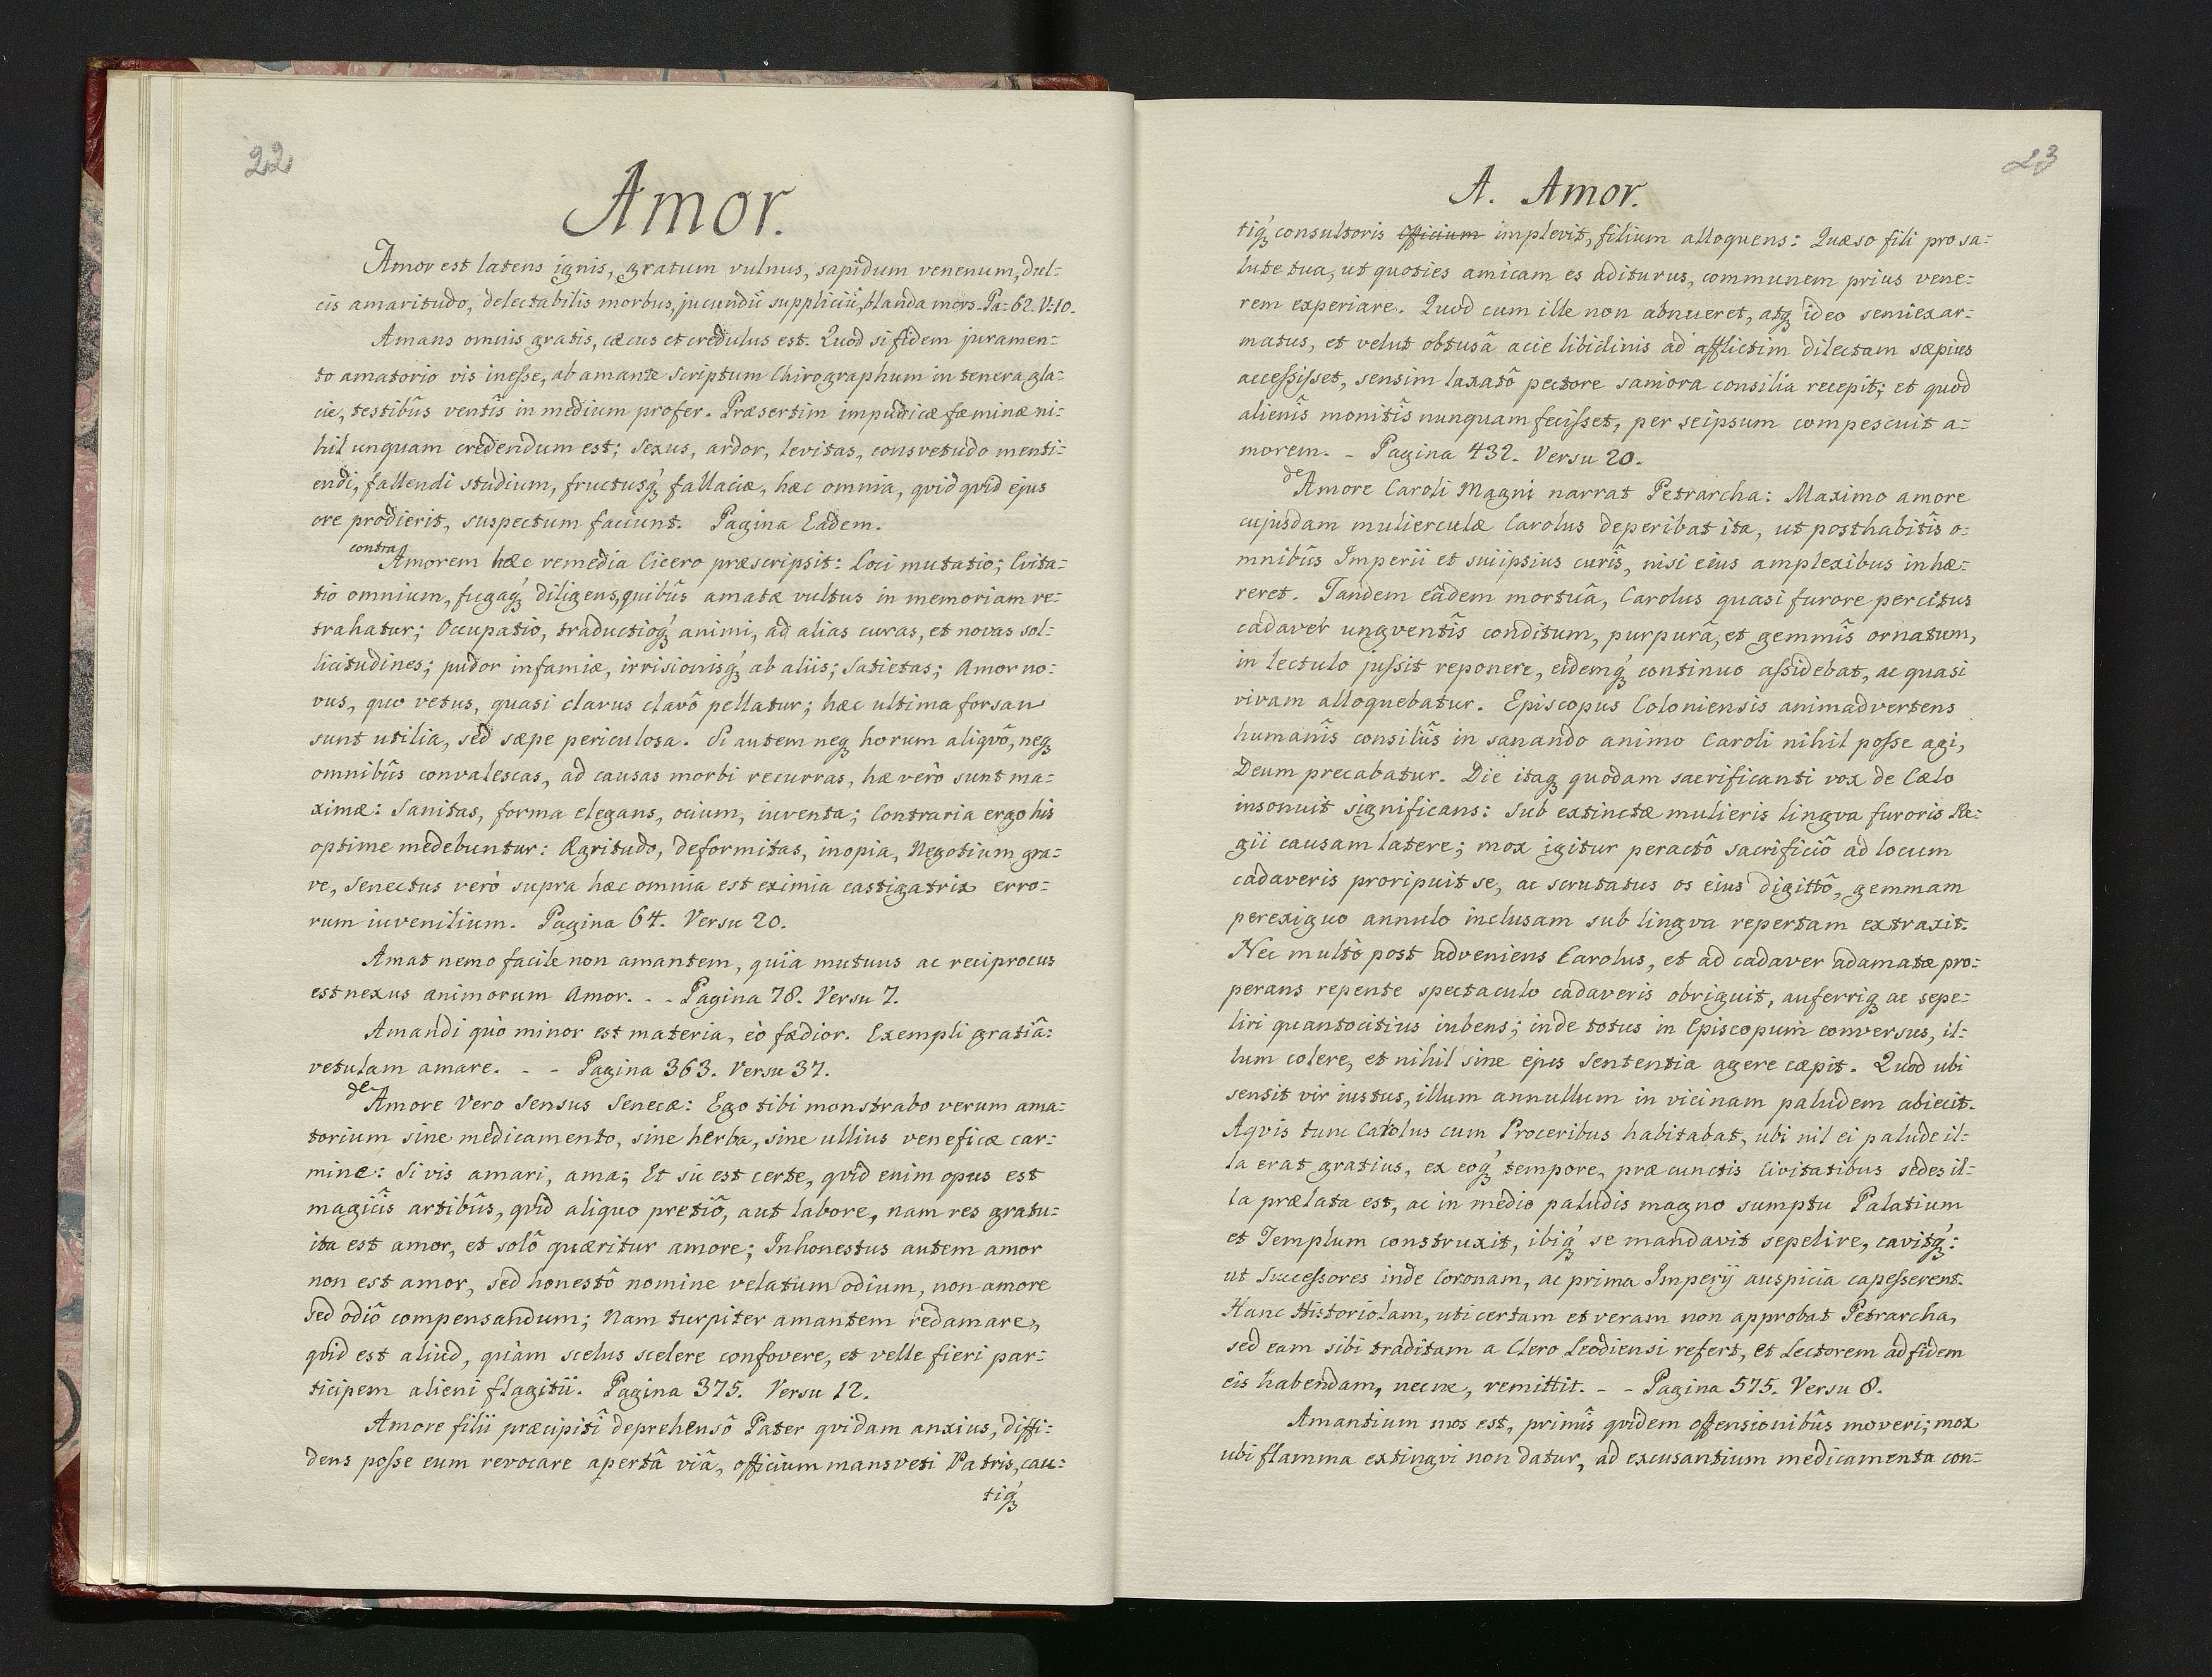 22
Amor.
Amor est latens ignis, gratum vulnus, sapidum venenum, dul=
cis amaritudo, delectabilis morbus, jucundũ suppliciũ, blanda mors. Pa=62. V=10.
Amans omnis gratis, cæcus et credulus est. Quod si fidem juramen=
to amatorio vis inesse, ab amante scriptum Chirographum in tenera gla=
cie, testibûs ventîs in medium profer. Præsertim impudicæ fæminæ ni=
hil unquam credendum est; sexus, ardor, levitas, consvetudo menti=
endi, fallendi studium, fructusq́ʒ fallaciæ, hæc omnia, qvid qvid ejus
ore prodierit, suspectum faciunt. Pagina Eadem.
contra
Amorem hæc remedia Cicero præscripsit: Loci mutatio; Evita=
tio omnium, fugaq́ʒ diligens, quibûs amatæ vultus in memoriam re=
trahatur; Occupatio, traductioq́ʒ animi, ad alias curas, et novas sol=
licitudines; pudor infamiæ, irrisionisq́ʒ ab aliis; Satietas; Amor no=
vus, quo vetus, quasi clavus clavô pellatur; hæc ultima forsan
sunt utilia, sed sæpe periculosa. Si autem neqʒ horum aliqvô, neqʒ
omnibûs convalescas, ad causas morbi recurras, hæ verò sunt ma=
ximæ: Sanitas, forma elegans, ocium, iuventa; Contraria ergo his
optime medebuntur: Ægritudo, deformitas, inopia, Negotium gra=
ve, Senectus verò supra hæc omnia est eximia castigatrix erro=
rum iuvenilium. Pagina 64. Versu 20.
Amat nemo facile non amantem, quia mutuus ac reciprocus
est nexus animorum Amor. - - Pagina 78. Versu 7.
Amandi quò minor est materia, eò fædior. Exempli gratiâ:
vetulam amare. - - Pagina 363. Versu 37.
de
Amore Vero Sensus Senecæ: Ego tibi monstrabo verum ama=
torium sine medicamento, sine herba, sine ullius veneficæ car=
mine: Si vis amari, ama; Et sic est certe, qvid enim opus est
magicîs artibûs, qvid aliquo pretiô, aut labore, nam res gratu=
ita est amor, et solô quæritur amore; Inhonestus autem amor
non est amor, sed honestô nomine velatum odium, non amore
sed odiô compensandum; Nam turpiter amantem redamare,
qvid est aliud, quàm scelus scelere confovere, et velle fieri par=
ticipem alieni flagitii. Pagina 375. Versu 12.
Amore filii præcipitî deprehensô Pater qvidam anxius, diffi=
dens posse eum revocare apertâ viâ, officium mansveti Patris, cau=
tiq́ʒ
23
A. Amor.
tiq́ʒ consultoris officium implevit, filium alloquens: Quæso fili pro sa=
lute tua, ut quoties amicam es aditurus, communem prius vene=
rem experiare. Quod cum ille non abnueret, atqʒ ideo semiexar=
matus, et velut obtusâ acie libidinis ad afflictim dilectam sæpius
accessisset, sensim laxatô pectore saniora consilia recepit; et quod
alienîs monitîs nunquam fecisset, per seipsum compescuit a=
morem. - Pagina 432. Versu 20.
de
Amore Caroli Magni narrat Petrarcha: Maximo amore
cujusdam mulierculæ Carolus deperibat ita, ut posthabitîs o=
mnibûs Imperii et suiipsius curîs, nisi eius amplexibus inhæ=
reret. Tandem eâdem mortuâ, Carolus quasi furore percitus
cadaver ungventîs conditum, purpurâ, et gemmîs ornatum,
in lectulo jussit reponere, eidemq́ʒ continuo assidebat, ac quasi
vivam alloquebatur. Episcopus Coloniensis animadvertens
humanîs consiliîs in sanando animo Caroli nihil posse agi,
Deum precabatur. Die itaqʒ quodam sacrificanti vox de Cælo
insonuit significans: Sub extinctæ mulieris lingva furoris Re=
gii causam latere; mox igitur peractô sacrificiô ad locum
cadaveris proripuit se, ac scrutatus os eius digittô, gemmam
perexiguo annulo inclusam sub lingva repertam extraxit.
Nec multò post adveniens Carolus, et ad cadaver adamatæ pro=
perans repente spectaculo cadaveris obriguit, auferriqʒ ac sepe=
liri quantocitius iubens; inde totus in Episcopum conversus, il=
lum colere, et nihil sine ejus Sententia agere cæpit. Quod ubi
sensit vir iustus, illum annullum in vicinam paludem abiecit.
Aqvis tunc Carolus cum Proceribus habitabat, ubi nil ei palude il=
la erat gratius, ex eoq́ʒ tempore, præ cunctis Civitatibus sedes il=
la prælata est, ac in medio paludis magno sumptu Palatium
et Templum construxit, ibiq́ʒ se mandavit sepelire, cavitq́ʒ:
ut Successores inde Coronam, ac prima Imperij auspicia capesserent.
Hanc Historiolam, uti certam et veram non approbat Petrarcha,
sed eam sibi traditam a Clero Leodiensi refert, et Lectorem ad fidem
eis habendam, necne, remittit. - - Pagina 575. Versu 8.
Amantium mos est, primîs qvidem offensionibûs moveri; mox
ubi flamma extingvi non datur, ad excusantium medicamenta con=